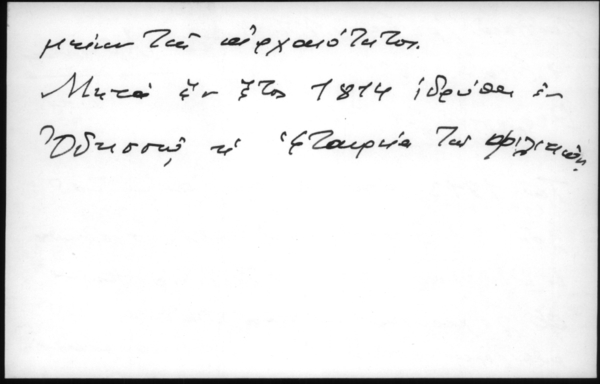 μείων τῆς ἀρχαιότητος.
Μετὰ ἓν ἔτος 1814 ἱδρύθη ἐν
Ὀδησσῷ ἡ Ἑταιρεία τῶν Φιλικῶν.